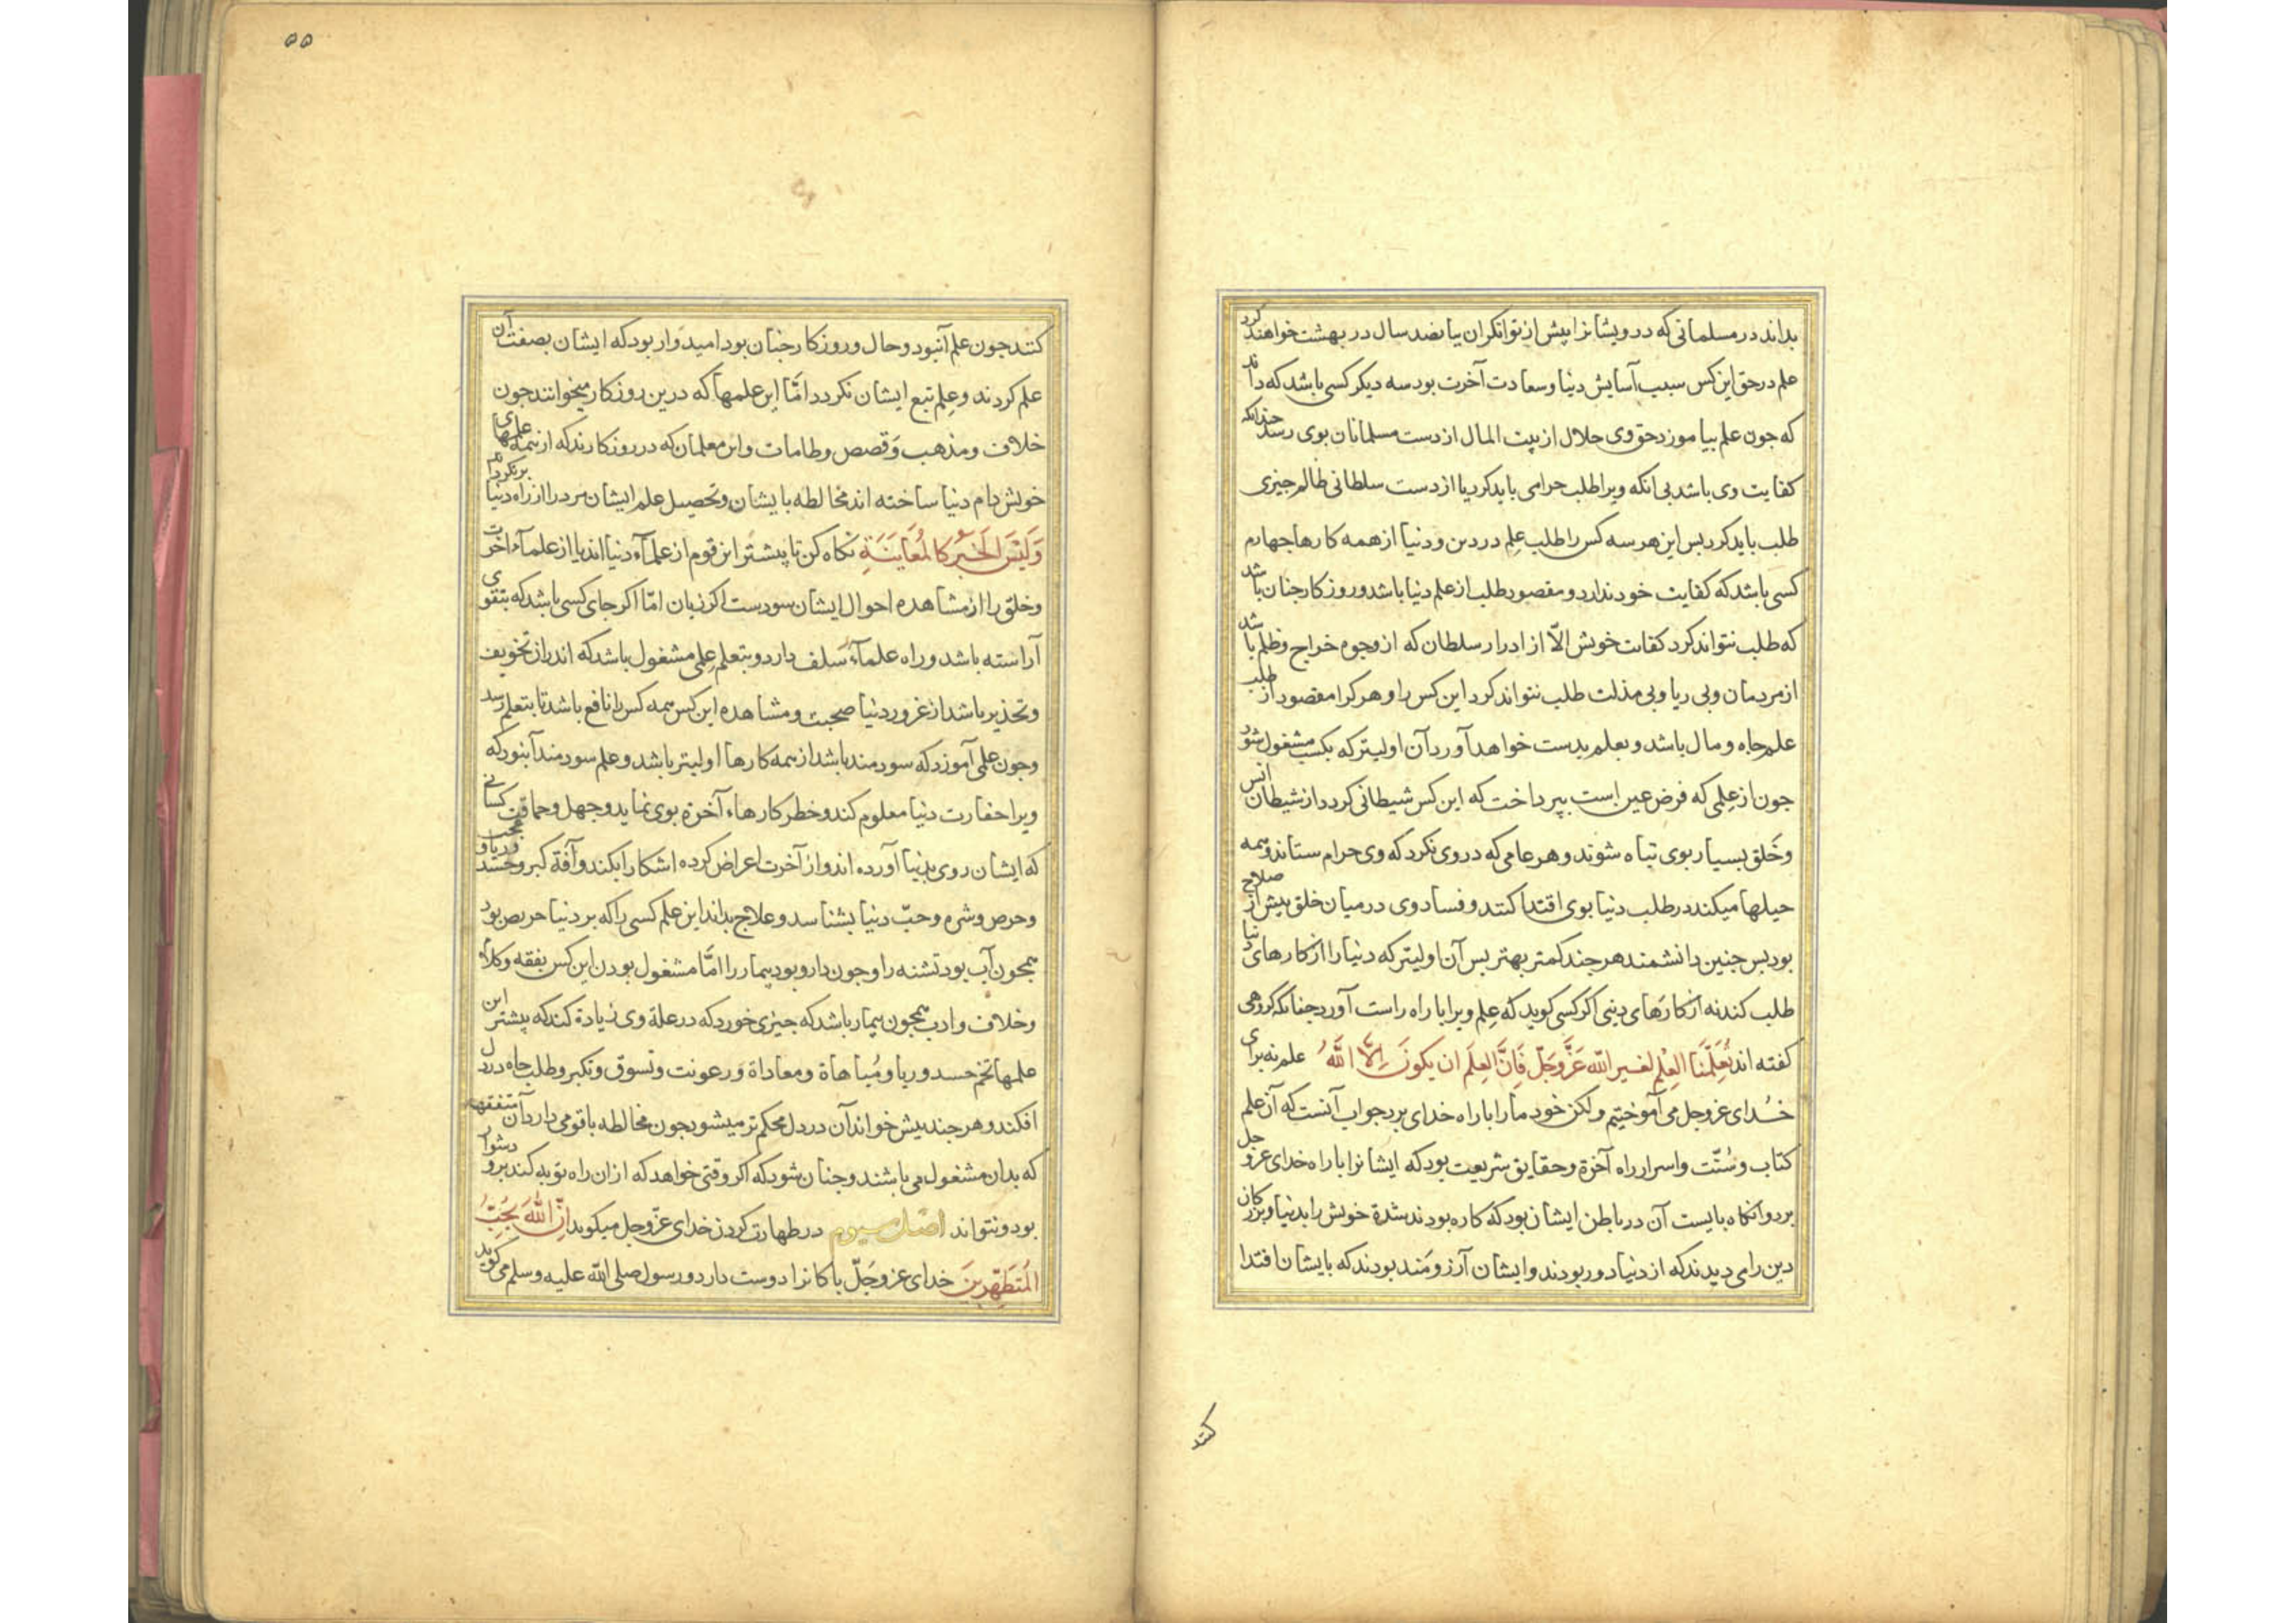 بداند در مسلمانی که درویشانرا پیش از توانگران بپانصد سال در بهشت خواهند کرد
علم در حق این کس سبب آسایش دنیا و سعادت آخرت بود سه دیکر کسی باشد که داند
که جون علم بیاموزد حق وی حلال از بیت المال از دست مسلمانان بوی رسد جندانکه
کفایت وی باشد بی انکه ویرا طلب حرامی باید کرد یا از دست سلطانی ظالم جیزی
طلب باید کرد بس این هر سه کس را طلب علم در دین و دنیا از همه کارها جهارم
کسی باشد که کفایت خود ندارد و مقصود طلب از علم دنیا باشد و روزکار جنان باشد
که طلب نتواند کرد کفایت خویش الّا از ادرار سلطان که از وجوه خراج و ظلم باشد
از مردمان و بی ریا و بی مذلت طلب نتواند کرد این کس را و هر کرا مقصود از طلب
علم جاه و مال باشد و بعلم بدست خواهد آورد آن اولیتر که بکسب مشغول شود
جون از علمی که فرض عین است بپرداخت که این کس شیطانی کردد از شیطان انس
و خلق بسیار بوی تباه شوند و هر عامی که در وی نکرد که وی حرام ستاند و همه
حیلها میکند در طلب دنیا بوی اقتدا کنند و فساد وی در میان خلق بیش از صلاح
بود بس جنین دانشمند هر جند کمتر بهتر بس آن اولیتر که دنیا را از کارهای دنیا
طلب کند نه از کارهای دینی اکر کسی کوید که علم ویرا با راه راست آورد جنانکه کروهی
کفته اند تَعَلَّمْنَا العِلْم لغیر الله عَزَّ وَجَلّ فَانَّ العِلمَ ان یکونَ اِلّا اللّهُ علم نه برای
خدای عزوجل می آموختیم ولکن خود ما را با راه خدای برد جواب آنست که آن علم
کتاب و سُنّت و اسرار راه آخرة و حقایق شریعت بود که ایشانرا با راه خدای عزوجل
برد و انکاه بایست آن در باطن ایشان بود که کاره بودند شدة خویش را بدنیا و بزرکان
دین را می دیدند که از دنیا دور بودند و ایشان آرزومند بودند که بایشان اقتدا
کنند
۵۵
کنند جون علم آنبود و حال و روزکار جنان بود امیدوار بود که ایشان بصفت آن
علم کردند و علم تبع ایشان نکردد امّا این علمها که درین روزکار میخوانند جون
خلاف و مذهب و قصص و طامات و این معلمان که در روزکارند که از همه علمهای
خویش دام دنیا ساخته اند مخالطه بایشان و تحصیل علم ایشان مرد را از راه دنیا برنکرداند
وَلَیْسَ الخَبَرُ کَالمُعَایَنَةِ نکاه کن تا پیشتر این قوم از علمآء دنیا اند یا از علمآء آخرت
و خلق را از مشاهده احوال ایشان سودست اکر زیان امّا اکر جای کسی باشد که بتقوی
آراسته باشد و راه علمآء سلف دارد و بتعلم علمی مشغول باشد که اندر از تخویف
و تحذیر باشد از غرور دنیا صحبت و مشاهده این کس همه کس را نافع باشد تا بتعلم رسد
و جون علمی آموزد که سودمند باشد از همه کارها اولیتر باشد و علم سودمند آنبود که
ویرا حقارت دنیا معلوم کند و خطر کارهاء آخرة بوی نماید و جهل و حماقت کسانی
که ایشان روی بدنیا آورده اند و از آخرت اعراض کرده اشکارا بکند و آفة کبر و حسد و ریا و عجب
و حرص و شره و حبّ دنیا بشناسد و علاج بداند این علم کسی را که بر دنیا حریص بود
همجون آب بود تشنه را و جون دارو بود بیمار را امّا مشغول بودن این کس بفقه و کلام
و خلاف و ادب همجون بیمار باشد که جیزی خورد که در علة وی زیادة کند که پیشتر این
علمها تخم حسد و ریا و مُباهاة و معاداة و رعونت و تسوق و تکبر و طلب جاه در دل
افکند و هر جند بیش خواند آن در دل محکم تر میشود جون مخالطه با قومی دارد آن متفقهه
که بدان مشغول می باشند و جنان شود که اکر وقتی خواهد که از ان راه توبه کند برو دشوار
بود و نتواند اصل سیوم در طهارت کردن خدای عزّوجل میکوید اِنَّ اللّهَ یُحِبُّ
المُتَطَهِّرِینَ خدای عز وجَلّ باکانرا دوست دارد و رسول صلی اللّه علیه وسلم می کوید